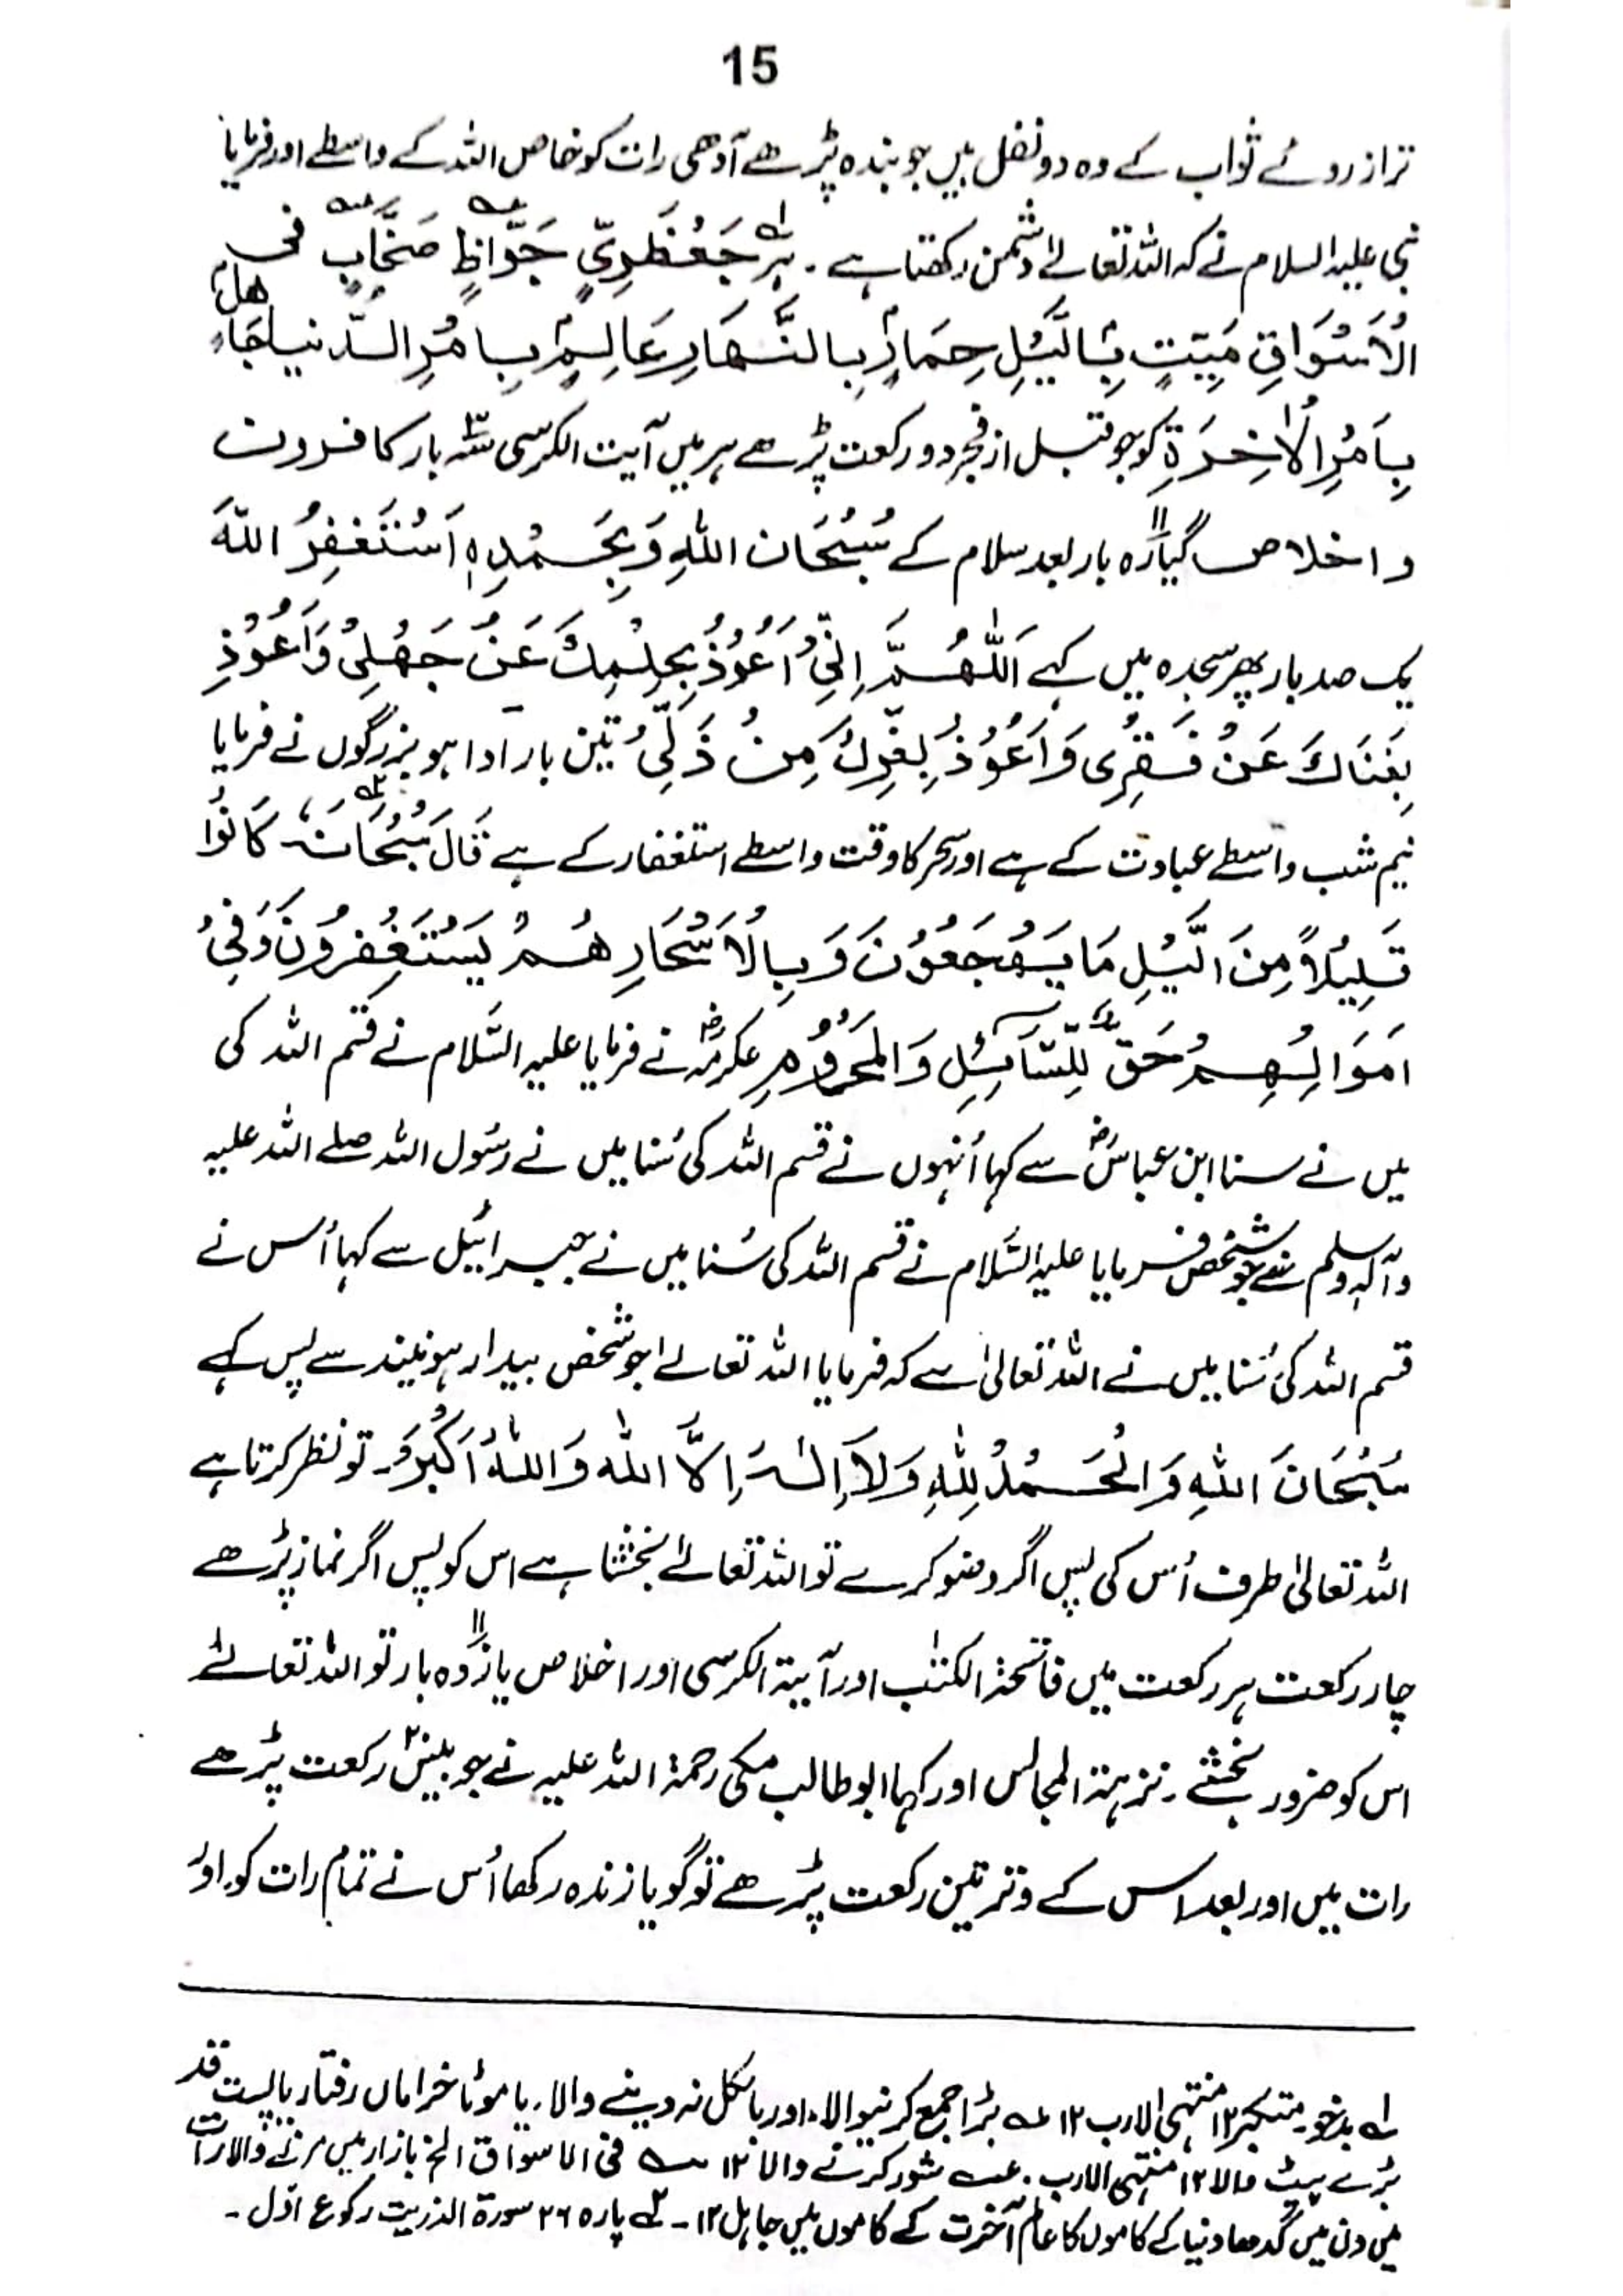 15
تر از روئے ثواب کے وہ دو نفل ہیں جو بندہ پڑھے آدھی رات کو خاص اللہ کے واسطے اور فرمایا
نبی علیہ السلام نے کہ اللہ تعالےٰ دشمن رکھتا ہے۔ ہر جَعْظَرِيٍّ جَوَّاظٍ صَخَّابٍ فی
الْاَسْوَاقِ مَیِّتٍ بِالَّیْلِ حِمَارٍ بِالنَّهَارِ عَالِمٍ بِاَمْرِ الدُّنیا جَاهِلٍ
بِاَمْرِ الْاٰخِرَةِ کو جو قبل از فجر دو رکعت پڑھے ہر میں آیت الکرسی بار کافرون
و اخلاص گیارہ ۱۱ بار بعد سلام کے سُبْحَان اللهِ وَبِحَمْدِہٖ اَسْتَغْفِرُ اللّٰهَ
یک صد بار پھر سجدہ میں کہے اَللّٰهُمَّ اِنِّیْ اَعُوْذُ بِحِلْمِكَ عَنْ جَهْلِیْ وَاَعُوْذِ
بِغَنَاكَ عَنْ فَقْرِی وَاَعُوْذُ بِعِزِّكَ مِنْ ذَلِّیْ تین بار ادا ہو بزرگوں نے فرمایا
نیم شب واسطے عبادت کے ہے اور سحر کا وقت واسطے استغفار کے ہے قَالَ سُبْحَانَہٗ کَانُوْا
قَلِیْلًا مِنَ الَّیْلِ مَا یَهْجَعُوْنَ وَبِالْاَسْحَارِ هُمْ یَسْتَغْفِرُوْنَ وَفِیْ
اَمْوَالِهِمْ حَقٌّ لِّلسَّآئِلِ وَالْمَحْرُوْمِ عکرمہؓ نے فرمایا علیہ السَّلام نے قسم اللہ کی
میں نے سنا ابن عباسؓ سے کہا اُنہوں نے قسم اللہ کی سُنا میں نے رسُول اللہ صلے اللہ علیہ
وآلہٖ وسلم سے جو شخص فرمایا علیہ السَّلام نے قسم اللہ کی سُنا میں نے جبرائیل سے کہا اُس نے
قسم اللہ کی سُنا میں نے اللہ تعالیٰ سے کہ فرمایا اللہ تعالےٰ جو شخص بیدار ہو نیند سے پس کہے
سُبْحَانَ اللهِ وَالْحَمْدُ لِلّٰهِ وَلَا اِلٰهَ اِلَّا اللّٰه وَاللّٰهُ اَكْبَرُ۔ تو نظر کرتا ہے
اللہ تعالیٰ طرف اُس کی پس اگر وضو کرے تو اللہ تعالےٰ بخشتا ہے اس کو پس اگر نماز پڑھے
چار رکعت ہر رکعت میں فاتحۃ الکتٰب اور آیۃ الکرسی اور اخلاص یازدہ ۱۱ بار تو اللہ تعالےٰ
اس کو ضرور بخشے۔ نزہۃ المجالس اور کہا ابو طالب مکی رحمۃ اللہ علیہ نے جو بیس رکعت پڑھے
رات میں اور بعد اس کے وتر تین رکعت پڑھے تو گویا زندہ رکھا اُس نے تمام رات کو۔ اور
لہ بدخو۔ متکبر ۱۲ منتہی الارب ۱۲ بڑا جمع کرنیوالا۔ اور بالکل نہ دینے والا۔ یا موٹا خراماں رفتار یا پست قد
بڑے پیٹ والا ۱۲ منتہی الارب۔ شور کرنے والا ۱۲ فی الاسواق الخ بازار میں مرنے والا رات
میں دن میں گدھا دنیا کے کاموں کا عالم آخرت کے کاموں میں جاہل ۱۲۔ پارہ ۲۶ سورۃ الذریت رکوع اوّل۔